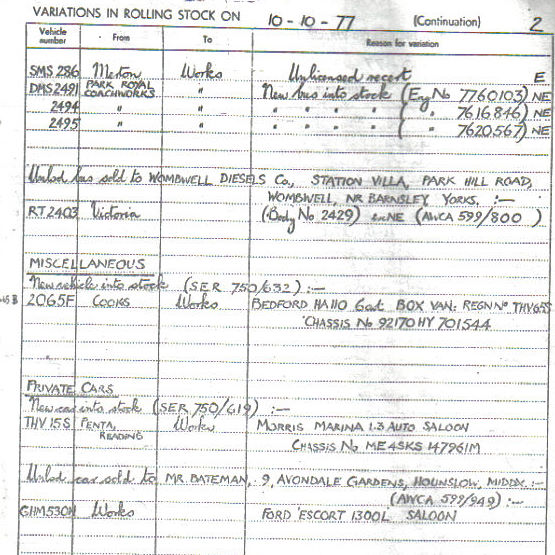 VARIATIONS IN ROLLING STOCK ON 10-10-77 (Continuation) 2
Vehicle number From To Reason for variation
SMS 286 Merton Works Unlicensed recert E
DMS 2491 PARK ROYAL COACHWORKS " New bus into stock (Eng No 7760103) NE
2494 " " " " " " ( " 7616846) NE
2495 " " " " " " ( " 7620567) NE
Unlcd bus sold to WOMBWELL DIESELS Co., STATION VILLA, PARK HILL ROAD,
WOMBWELL, NR BARNSLEY, YORKS, :—
RT 2403 Victoria (Body No 2429) ex NE (AWCA 599/800)
MISCELLANEOUS
New vehicle into stock (SER 750/632) :—
2065F COOKS Works BEDFORD HA110 6cwt BOX VAN. REGN No THV 65S
CHASSIS No 92170HY 701544
PRIVATE CARS
New car into stock (SER 750/619) :—
THV 15S PENTA, READING Works MORRIS MARINA 1.3 AUTO SALOON
CHASSIS No ME4SKS 147961M
Unlcd car sold to MR. BATEMAN, 9, AVONDALE GARDENS, HOUNSLOW, MIDDX. :—
(AWCA 599/949) :—
GHM 530N Works FORD ESCORT 1300L SALOON